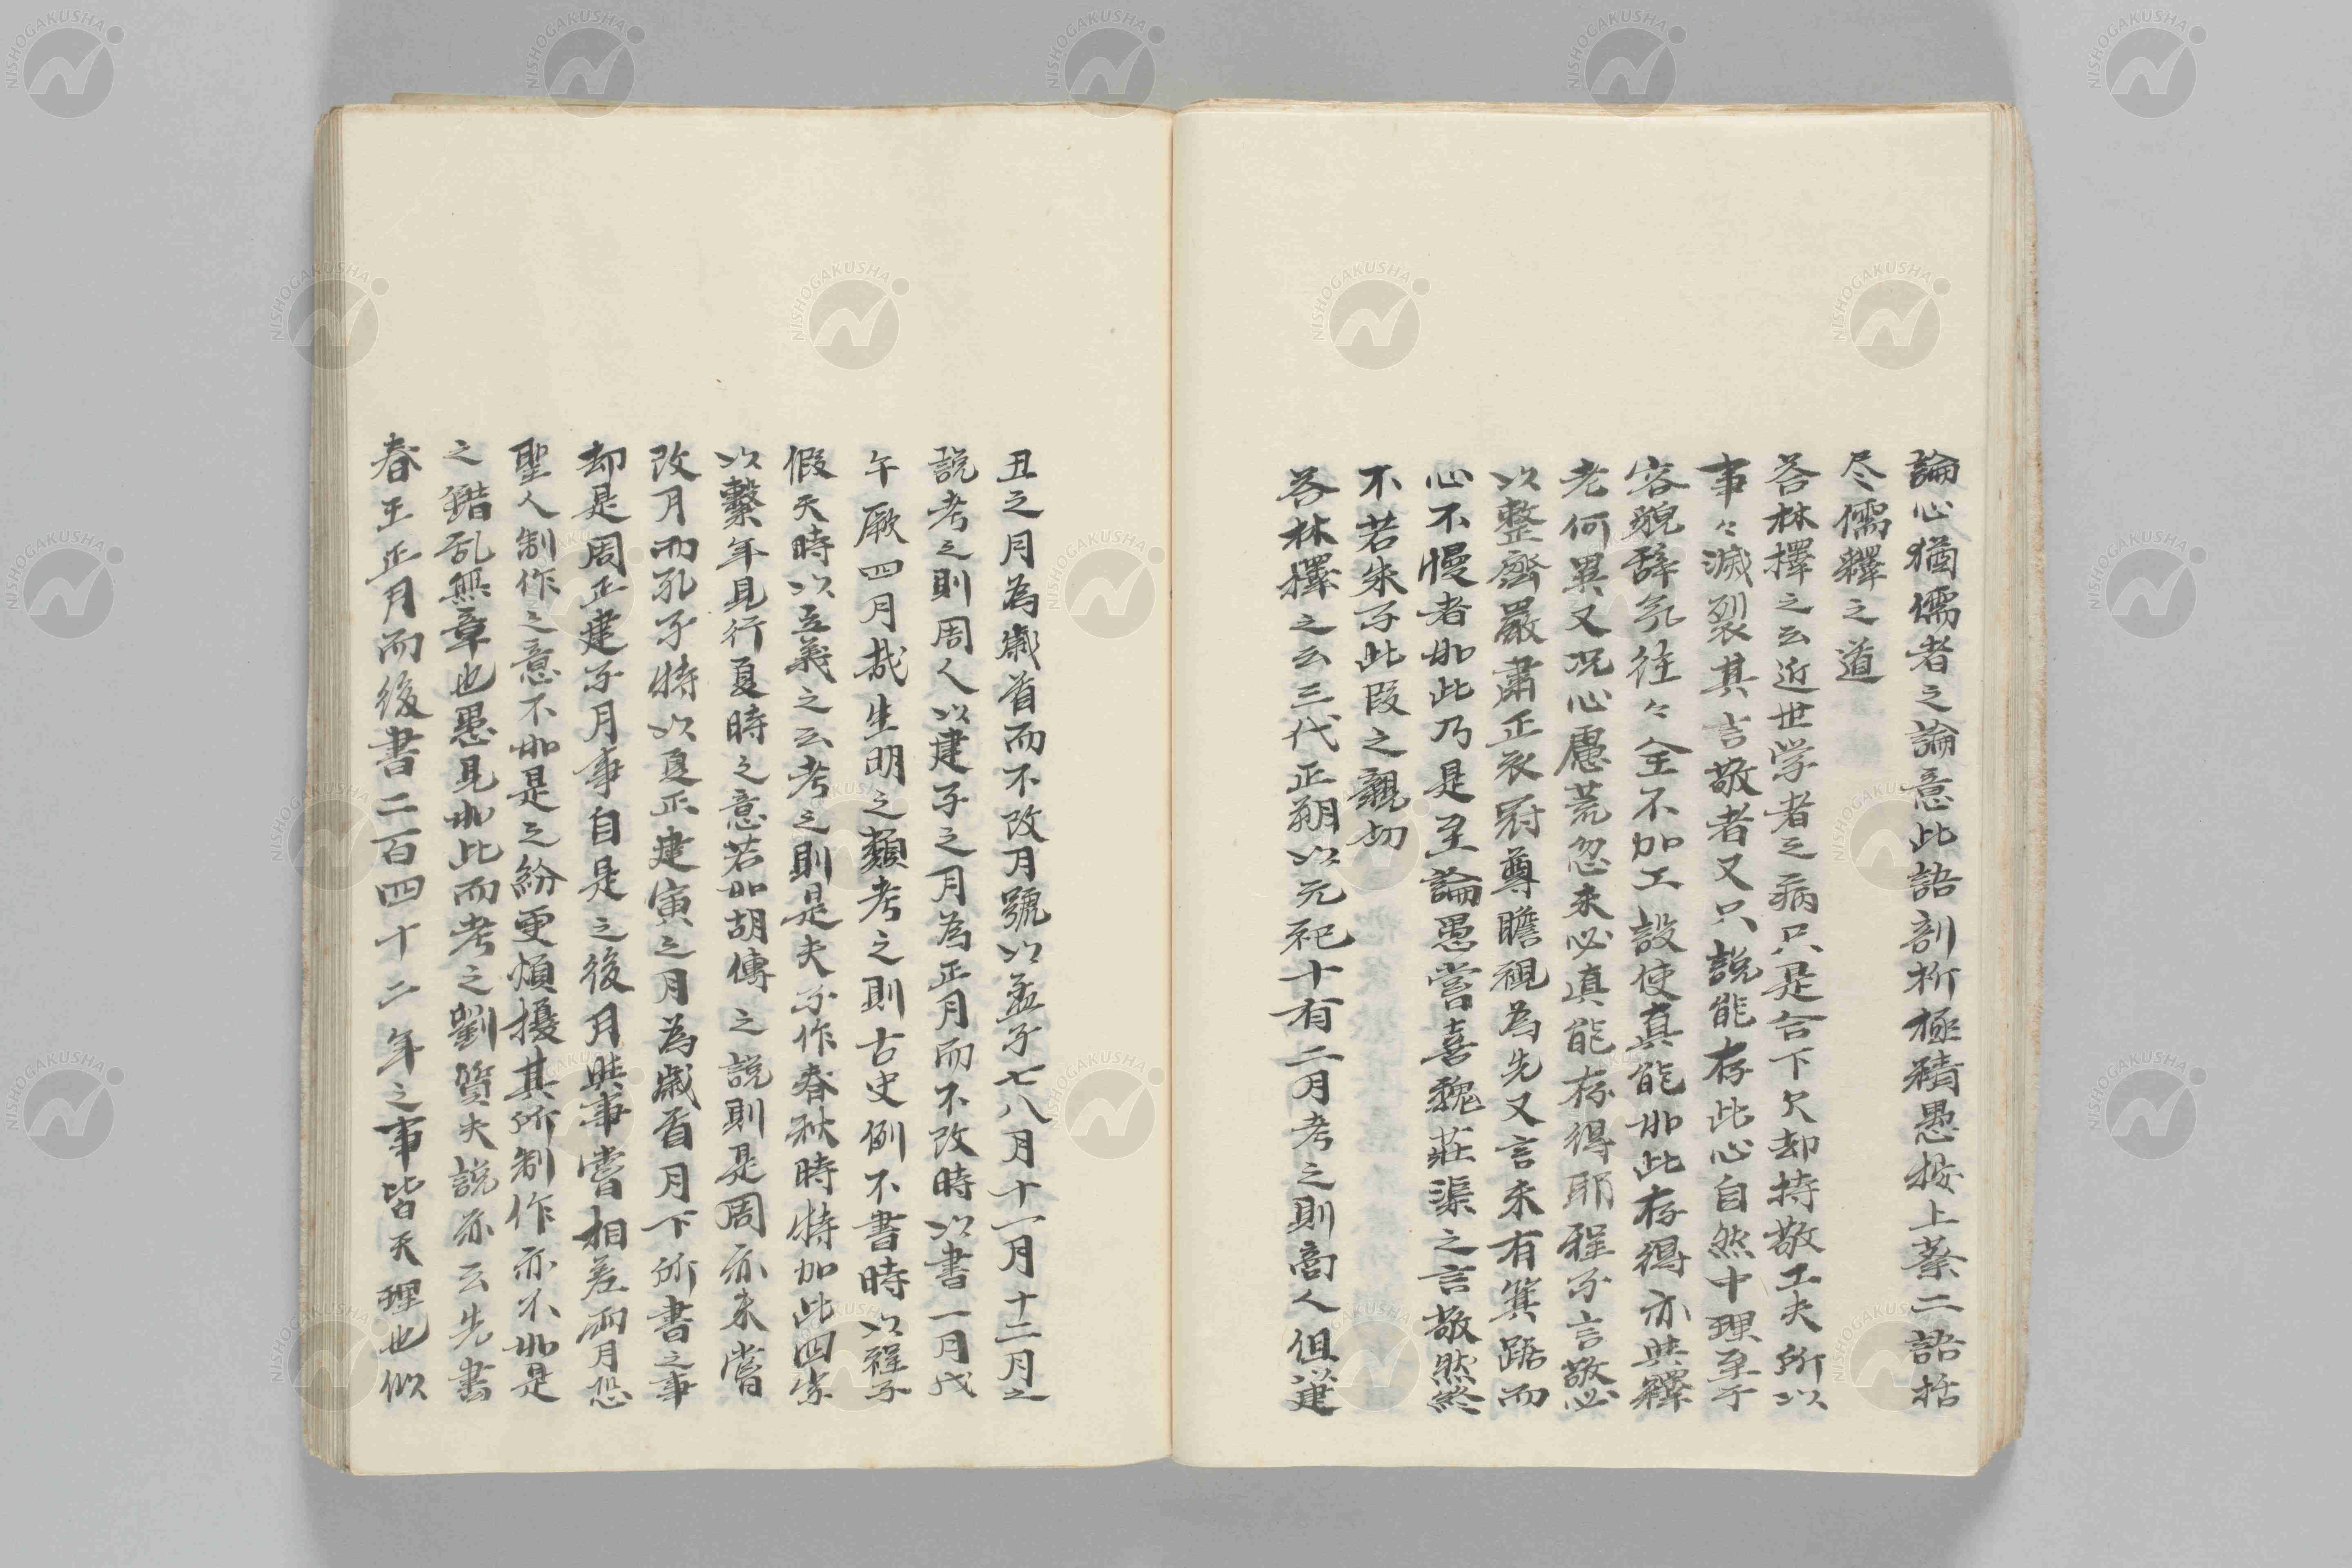 論心猶儒者之論意此語剖析極精愚按上蔡二語括
尽儒釋之道
答林擇之云近世学者之病只是合下欠却持敬工夫所以
事々滅裂其言敬者又只説能存此心自然中理至于
容貌辞気往々全不加工設使真能如此存得亦与釋
老何異又况心慮荒忽未必真能存得耶程子言敬必
以整齊嚴肅正衣冠尊瞻視為先又言未有箕踞而
心不慢者如此乃是至論愚嘗喜魏莊渠之言敬然終
不若朱子此段之親切
答林擇之云三代正朔以元祀十有二月考之則商人但以建
丑之月為歳首而不改月號以孟子七八月十一月十二月之
説考之則周人以建子之月為正月而不改時以書一月戊
午厥四月哉生明之類考之則古史例不書時以程子
假天時以立義之云考之則是夫子作春秋時特加此四字
以繋年見行夏時之意若如胡傳之説則是周亦未嘗
改月而孔子特以夏正建寅之月為歳首月下所書之事
却是周正建子月事自是之後月與事嘗相差兩月恐
聖人制作之意不如是之紛更煩擾其所制作亦不如是
之錯乱無章也愚見如此而考之劉質夫説亦云先書
春王正月而後書二百四十二年之事皆天理也似
NISHOGAKUSHA